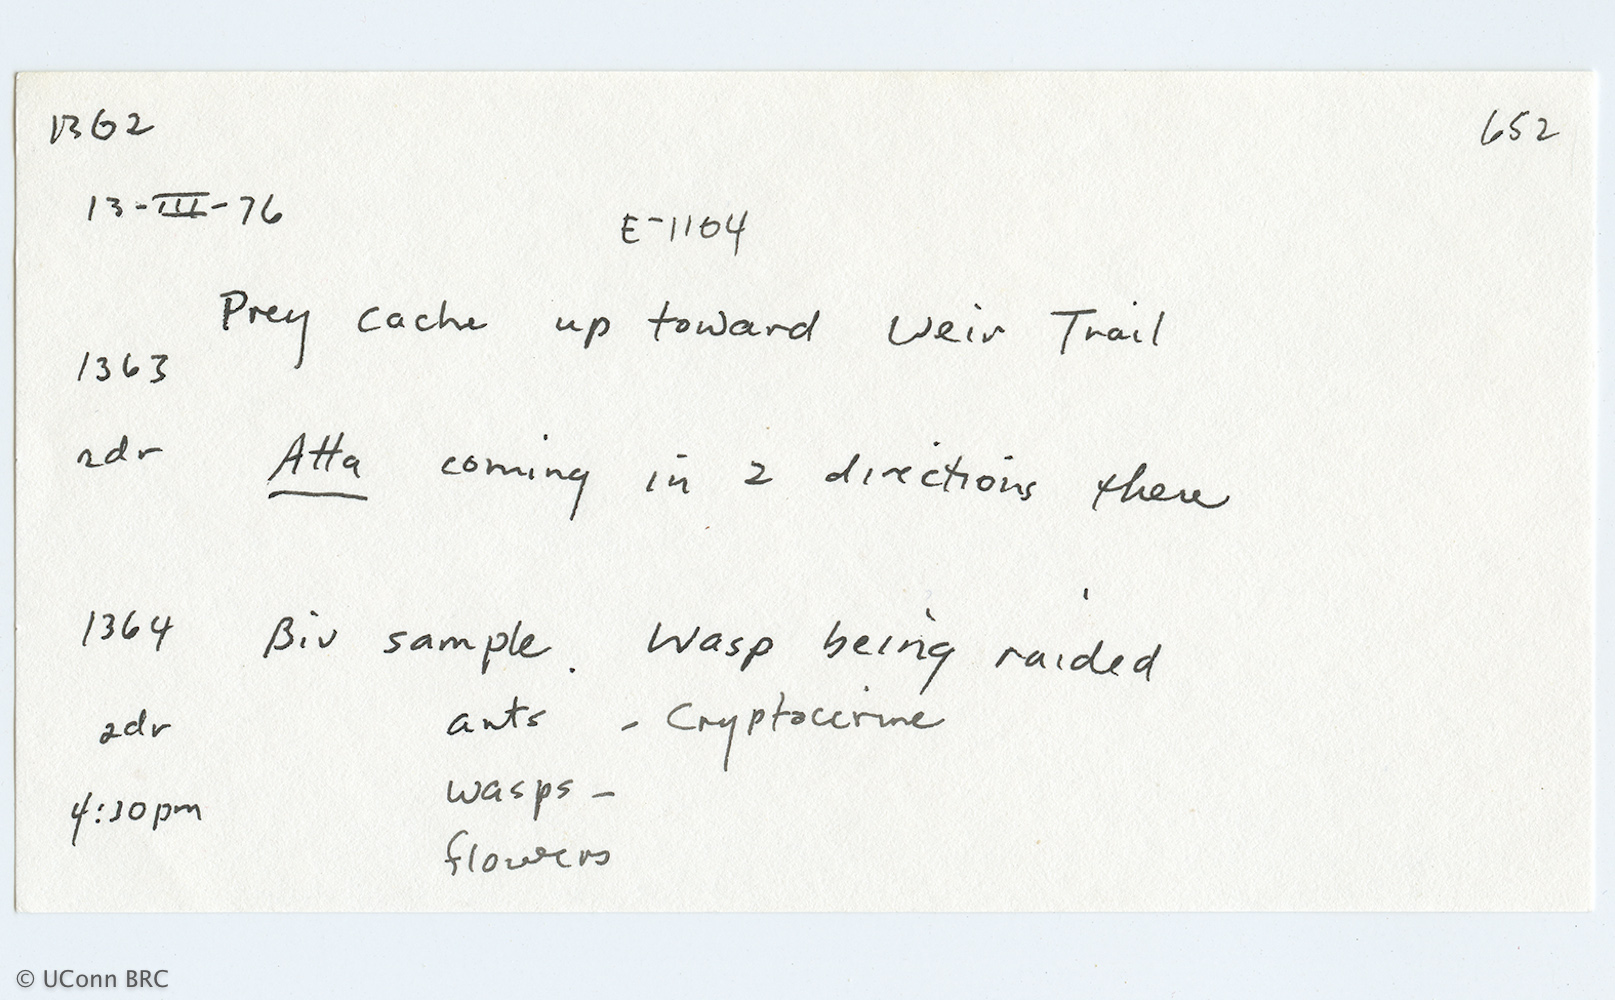 1362 652
13-III-76 E-1104
Prey cache up toward Weir Trail
1363
2dr Atta coming in 2 directions there
1364 Biv sample. Wasp being raided
2dr ants - Cryptocerine
4:30pm wasps -
flowers
© UConn BRC